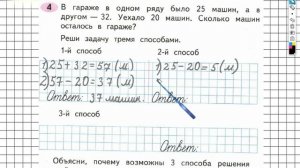 4 В гараже в одном ряду было 25 машин, а в
другом — 32. Уехало 20 машин. Сколько машин
осталось в гараже?
Реши задачу тремя способами.
1-й способ 2-й способ
1) 25 + 32 = 57 (м) 1) 25 - 20 = 5 (м)
2) 57 - 20 = 37 (м)
Ответ: 37 машин. Ответ:
3-й способ
Ответ:
Объясни, почему возможны 3 способа решения